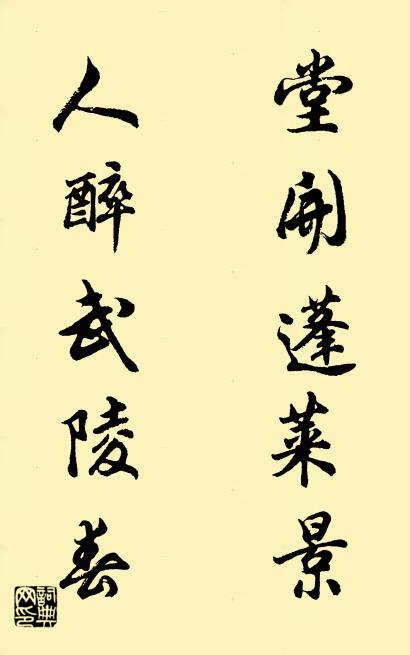 堂開蓬萊景
人醉武陵春
詞典網印